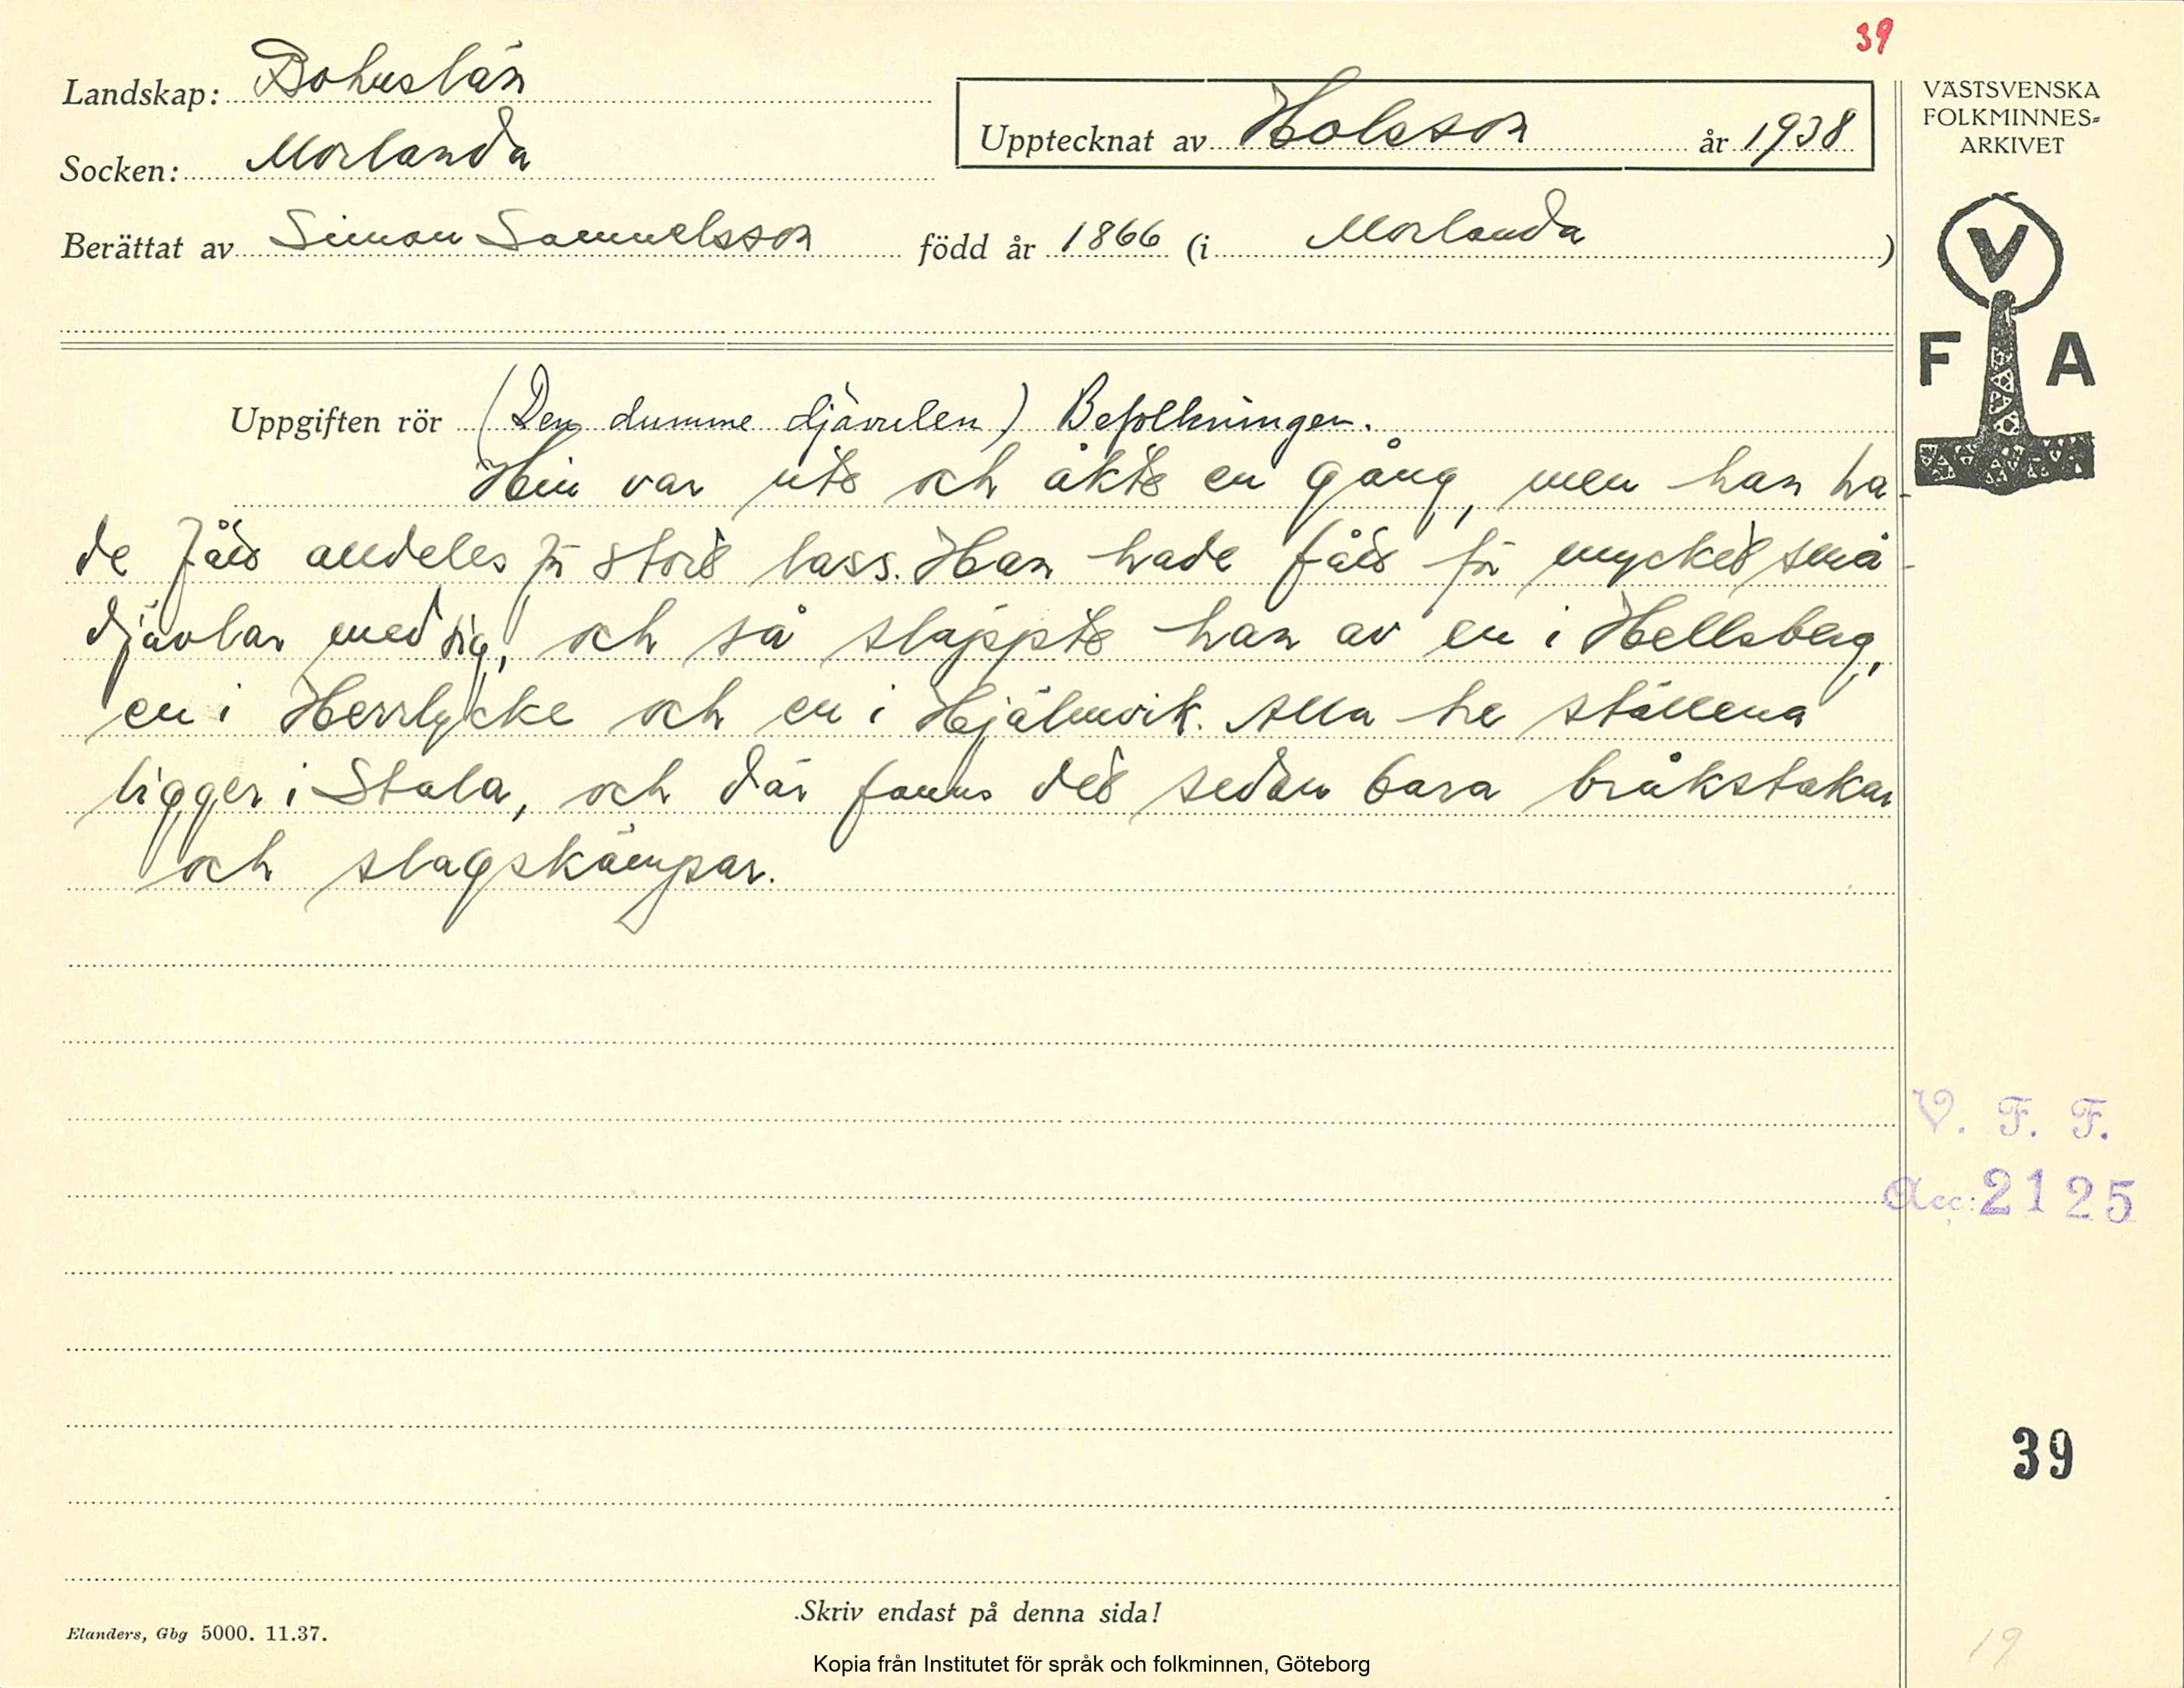 39
Landskap: Bohuslän
Socken: Morlanda
Upptecknat av Holsson år 1938
Berättat av Simon Samuelsson född år 1866 (i Morlanda )
VÄSTSVENSKA
FOLKMINNES=
ARKIVET
V
F A
Uppgiften rör (Den dumme djävulen) Befolkningen.
Hin var ute och åkte en gång, men han ha-
de fått alldeles för stort lass. Han hade fått för mycket små-
djävlar med sig, och så släppte han av en i Hellsberg,
en i Herrlycke och en i Hjälmvik. Alla tre ställena
ligger i Stala, och där fanns det sedan bara bråkstakar
och slagskämpar.
V. F. F.
Acc: 2125
39
Skriv endast på denna sida!
Elanders, Gbg 5000. 11.37.
19
Kopia från Institutet för språk och folkminnen, Göteborg